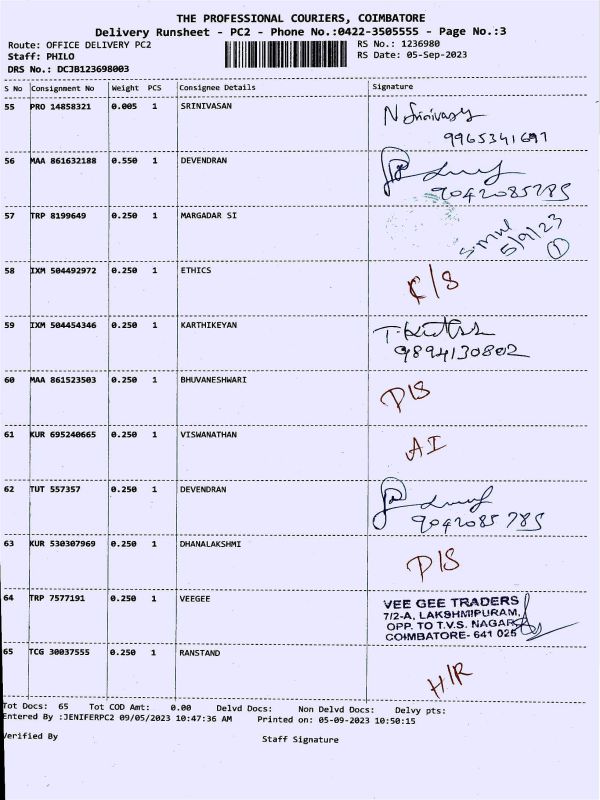 THE PROFESSIONAL COURIERS, COIMBATORE
Delivery Runsheet - PC2 - Phone No.:0422-3505555 - Page No.:3
Route: OFFICE DELIVERY PC2 RS No.: 1236980
Staff: PHILO RS Date: 05-Sep-2023
DRS No.: DCJB123698003
S No Consignment No Weight PCS Consignee Details Signature
55 PRO 14858321 0.005 1 SRINIVASAN
N Srinivasan
9965341697
56 MAA 861632188 0.550 1 DEVENDRAN
9042085785
57 TRP 8199649 0.250 1 MARGADAR SI
5/9/23
1
58 IXM 504492972 0.250 1 ETHICS
C/S
59 IXM 504454346 0.250 1 KARTHIKEYAN
9894130802
60 MAA 861523503 0.250 1 BHUVANESHWARI
D/S
61 KUR 695240665 0.250 1 VISWANATHAN
AI
62 TUT 557357 0.250 1 DEVENDRAN
9042085785
63 KUR 530307969 0.250 1 DHANALAKSHMI
D/S
64 TRP 7577191 0.250 1 VEEGEE
VEE GEE TRADERS
7/2-A, LAKSHMIPURAM,
OPP. TO T.V.S. NAGAR
COIMBATORE- 641 025
65 TCG 30037555 0.250 1 RANSTAND
H/R
Tot Docs: 65 Tot COD Amt: 0.00 Delvd Docs: Non Delvd Docs: Delvy pts:
Entered By :JENIFERPC2 09/05/2023 10:47:36 AM Printed on: 05-09-2023 10:50:15
Verified By Staff Signature